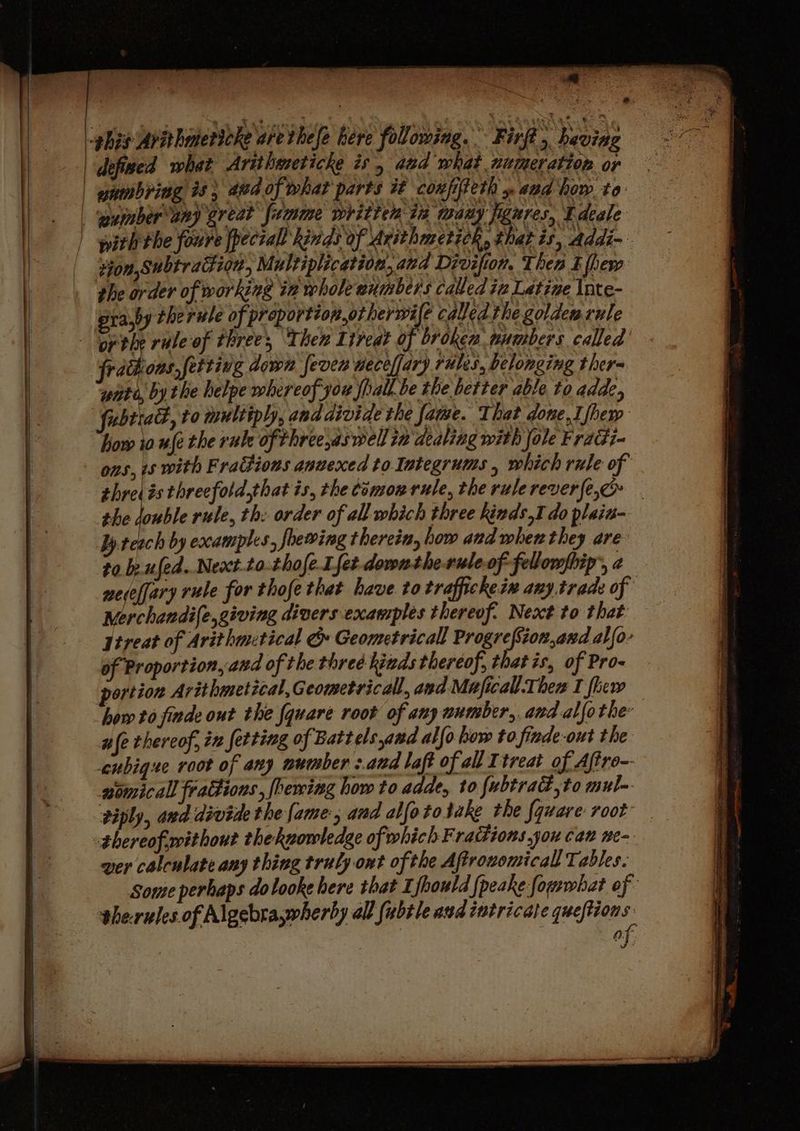 this Arithmeticke are these here following. First, having
defined what Arithmeticke is, and what numeration or
numbring is; and of what parts it consisteth, and how to
number any great summe written in many figures, I deale
with the foure speciall kinds of Arithmetick, that is, Addi-
tion, Subtraction, Multiplication, and Division. Then I shew
the order of working in whole numbers called in Latine Inte-
gra, by the rule of proportion, otherwise called the golden rule
or the rule of three; Then I treat of broken numbers called
fractions, setting down seven necessary rules, belonging ther-
unto, by the helpe whereof you shall be the better able to adde,
subtract, to multiply, and divide the same. That done, I shew
how to use the rule of three, as well in dealing with sole Fracti-
ons, as with Fractions annexed to Integrums, which rule of
three is threefold, that is, the cōmon rule, the rule reverse, &
the double rule, the order of all which three kinds, I do plain-
ly teach by examples, shewing therein, how and when they are
to be used. Next to those I set down the rule of fellowship, a
necessary rule for those that have to trafficke in any trade of
Merchandise, giving divers examples thereof. Next to that
I treat of Arithmetical & Geometricall Progression, and also
of Proportion, and of the three kinds thereof, that is, of Pro-
portion Arithmetical, Geometricall, and Musicall. Then I shew
how to finde out the square root of any number, and also the
use thereof, in setting of Battels, and also how to finde out the
cubique root of any number: and last of all I treat of Astro-
nomicall fractions, shewing how to adde, to subtract, to mul-
tiply, and divide the same, and also to take the square root
thereof, without the knowledge of which Fractions you can ne-
ver calculate any thing truly out of the Astronomicall Tables.
Some perhaps do looke here that I should speake somwhat of
the rules of Algebra, wherby all subtle and intricate questions
of